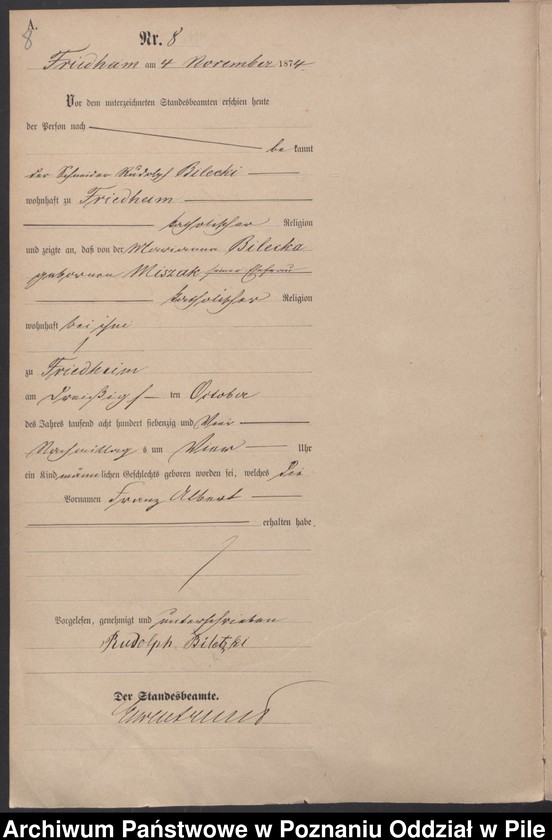 A.
8
Nr. 8
Friedheim am 4 November 1874.
Vor dem unterzeichneten Standesbeamten erschien heute
der Person nach
be kannt
der Schneider Rudolph Bilecki
wohnhaft zu Friedheim
katholischer Religion
und zeigte an, daß von der Marianna Bilecka
geborenen Miszak seiner Ehefrau
katholischer Religion
wohnhaft bei ihm
zu Friedheim
am Dreißigs ten October
des Jahres tausend acht hundert siebenzig und Vier
Nachmittags um Vier Uhr
ein Kind männlichen Geschlechts geboren worden sei, welches die
Vornamen Franz Albert
erhalten habe.
Vorgelesen, genehmigt und unterschrieben
Rudolph Biletzki
Der Standesbeamte.
Archiwum Państwowe w Poznaniu Oddział w Pile